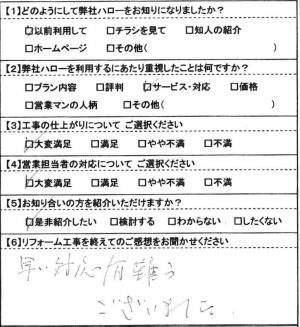 【1】どのようにして弊社ハローをお知りになりましたか?
☑以前利用して □チラシを見て □知人の紹介
□ホームページ □その他( )
【2】弊社ハローを利用するにあたり重視したことは何ですか?
□プラン内容 □評判 ☑サービス・対応 □価格
□営業マンの人柄 □その他( )
【3】工事の仕上がりについて ご選択ください
☑大変満足 □満足 □やや不満 □不満
【4】営業担当者の対応について ご選択ください
☑大変満足 □満足 □やや不満 □不満
【5】お知り合いの方を紹介いただけますか?
☑是非紹介したい □検討する □わからない □したくない
【6】リフォーム工事を終えてのご感想をお聞かせください
早い対応有難う
ございました。